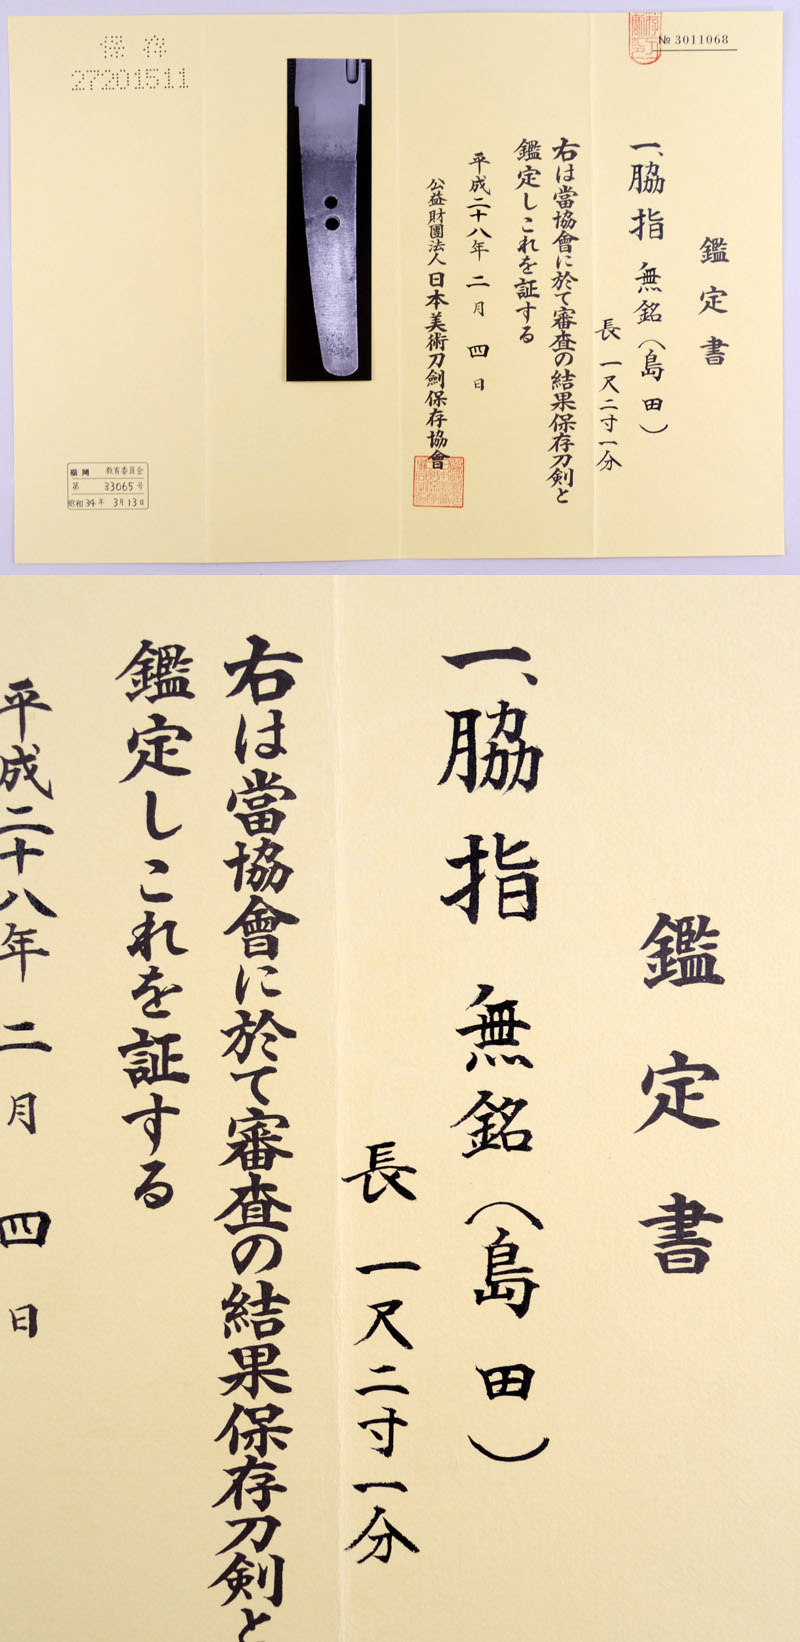 № 3011068
鑑定書
一、脇指 無銘(島田)
長 一尺二寸一分
右は當協會に於て審査の結果保存刀剣と
鑑定しこれを証する
平成二十八年 二月 四日
公益財團法人 日本美術刀劍保存協會
保存
27201511
教育委員会
第 33065 号
昭和 34 年 3月 13日
鑑定書
一、脇指 無銘(島田)
長 一尺二寸一分
右は當協會に於て審査の結果保存刀剣と
鑑定しこれを証する
平成二十八年 二月 四日